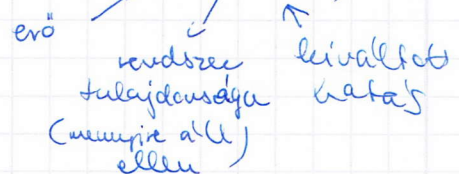 erő
rendszer
tulajdonsága
(mennyire áll)
ellen
kiváltott
hatás